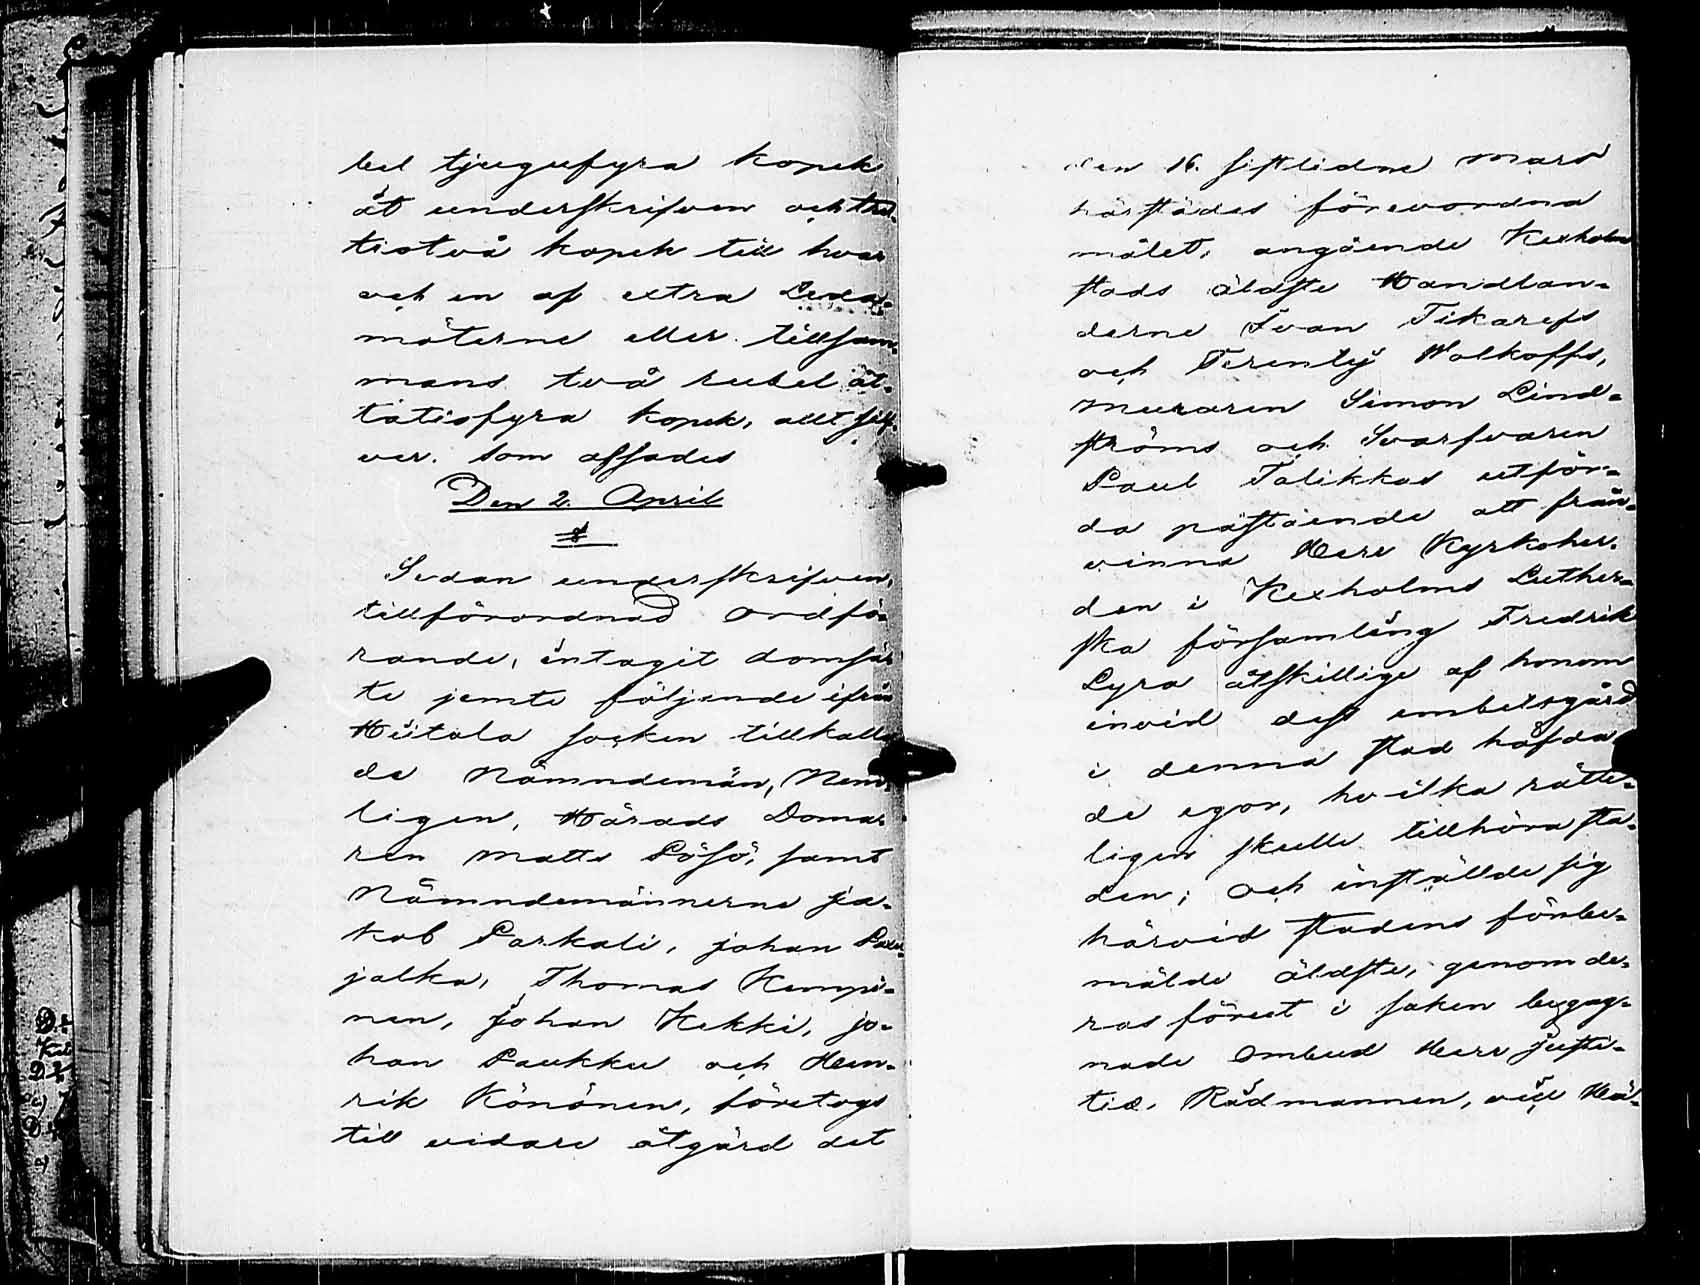 bel tjugufyra kopek
åt underskrifven och tret-
tiotvå kopek till hvar
och en af extra Leda-
möterne eller tillsam-
mans två rubel åt-
tatiofyra kopek, allt silf-
ver. som afsades
Den 2. April
§
Sedan underskrifven,
tillförordnad ordfö-
rande, intagit domsä-
te jemte följande ifrån
Hiitola socken tillkalla-
de Nämndemän, Nem-
ligen, Härads Doma-
ren Matts Pösö, samt
Nämndemännerne Ja-
kob Parkali, Johan
jalka, Thomas Kempi-
nen, Johan Kekki, Jo-
han Paukku och Hen-
rik Könönen, företogs
till vidare åtgärd det
den 16. sistlidne Mars
härstädes förevordna
målet, angående Kexholms
stads äldste Handlan-
derne Ivan Tikareffs
och Terentij Wolkoffs,
Muraren Simon Lind-
ströms och Svarfvaren
Paul Talikkas utför-
da påstående att från-
vinna Herr Kyrkoher-
den i Kexholms Luther-
ska församling Fredrik
Lyra åtskillige af honom
invid dess embetsgård
i denna stad häfda-
de egor, hvilka rätte-
ligen skulle tillhöra sta-
den; och inställde sig
härvid stadens förbe-
mälde äldste, genom de-
ras förut i saken begag-
nade ombud Herr Justi-
tiæ Rådmannen, vice Hä-